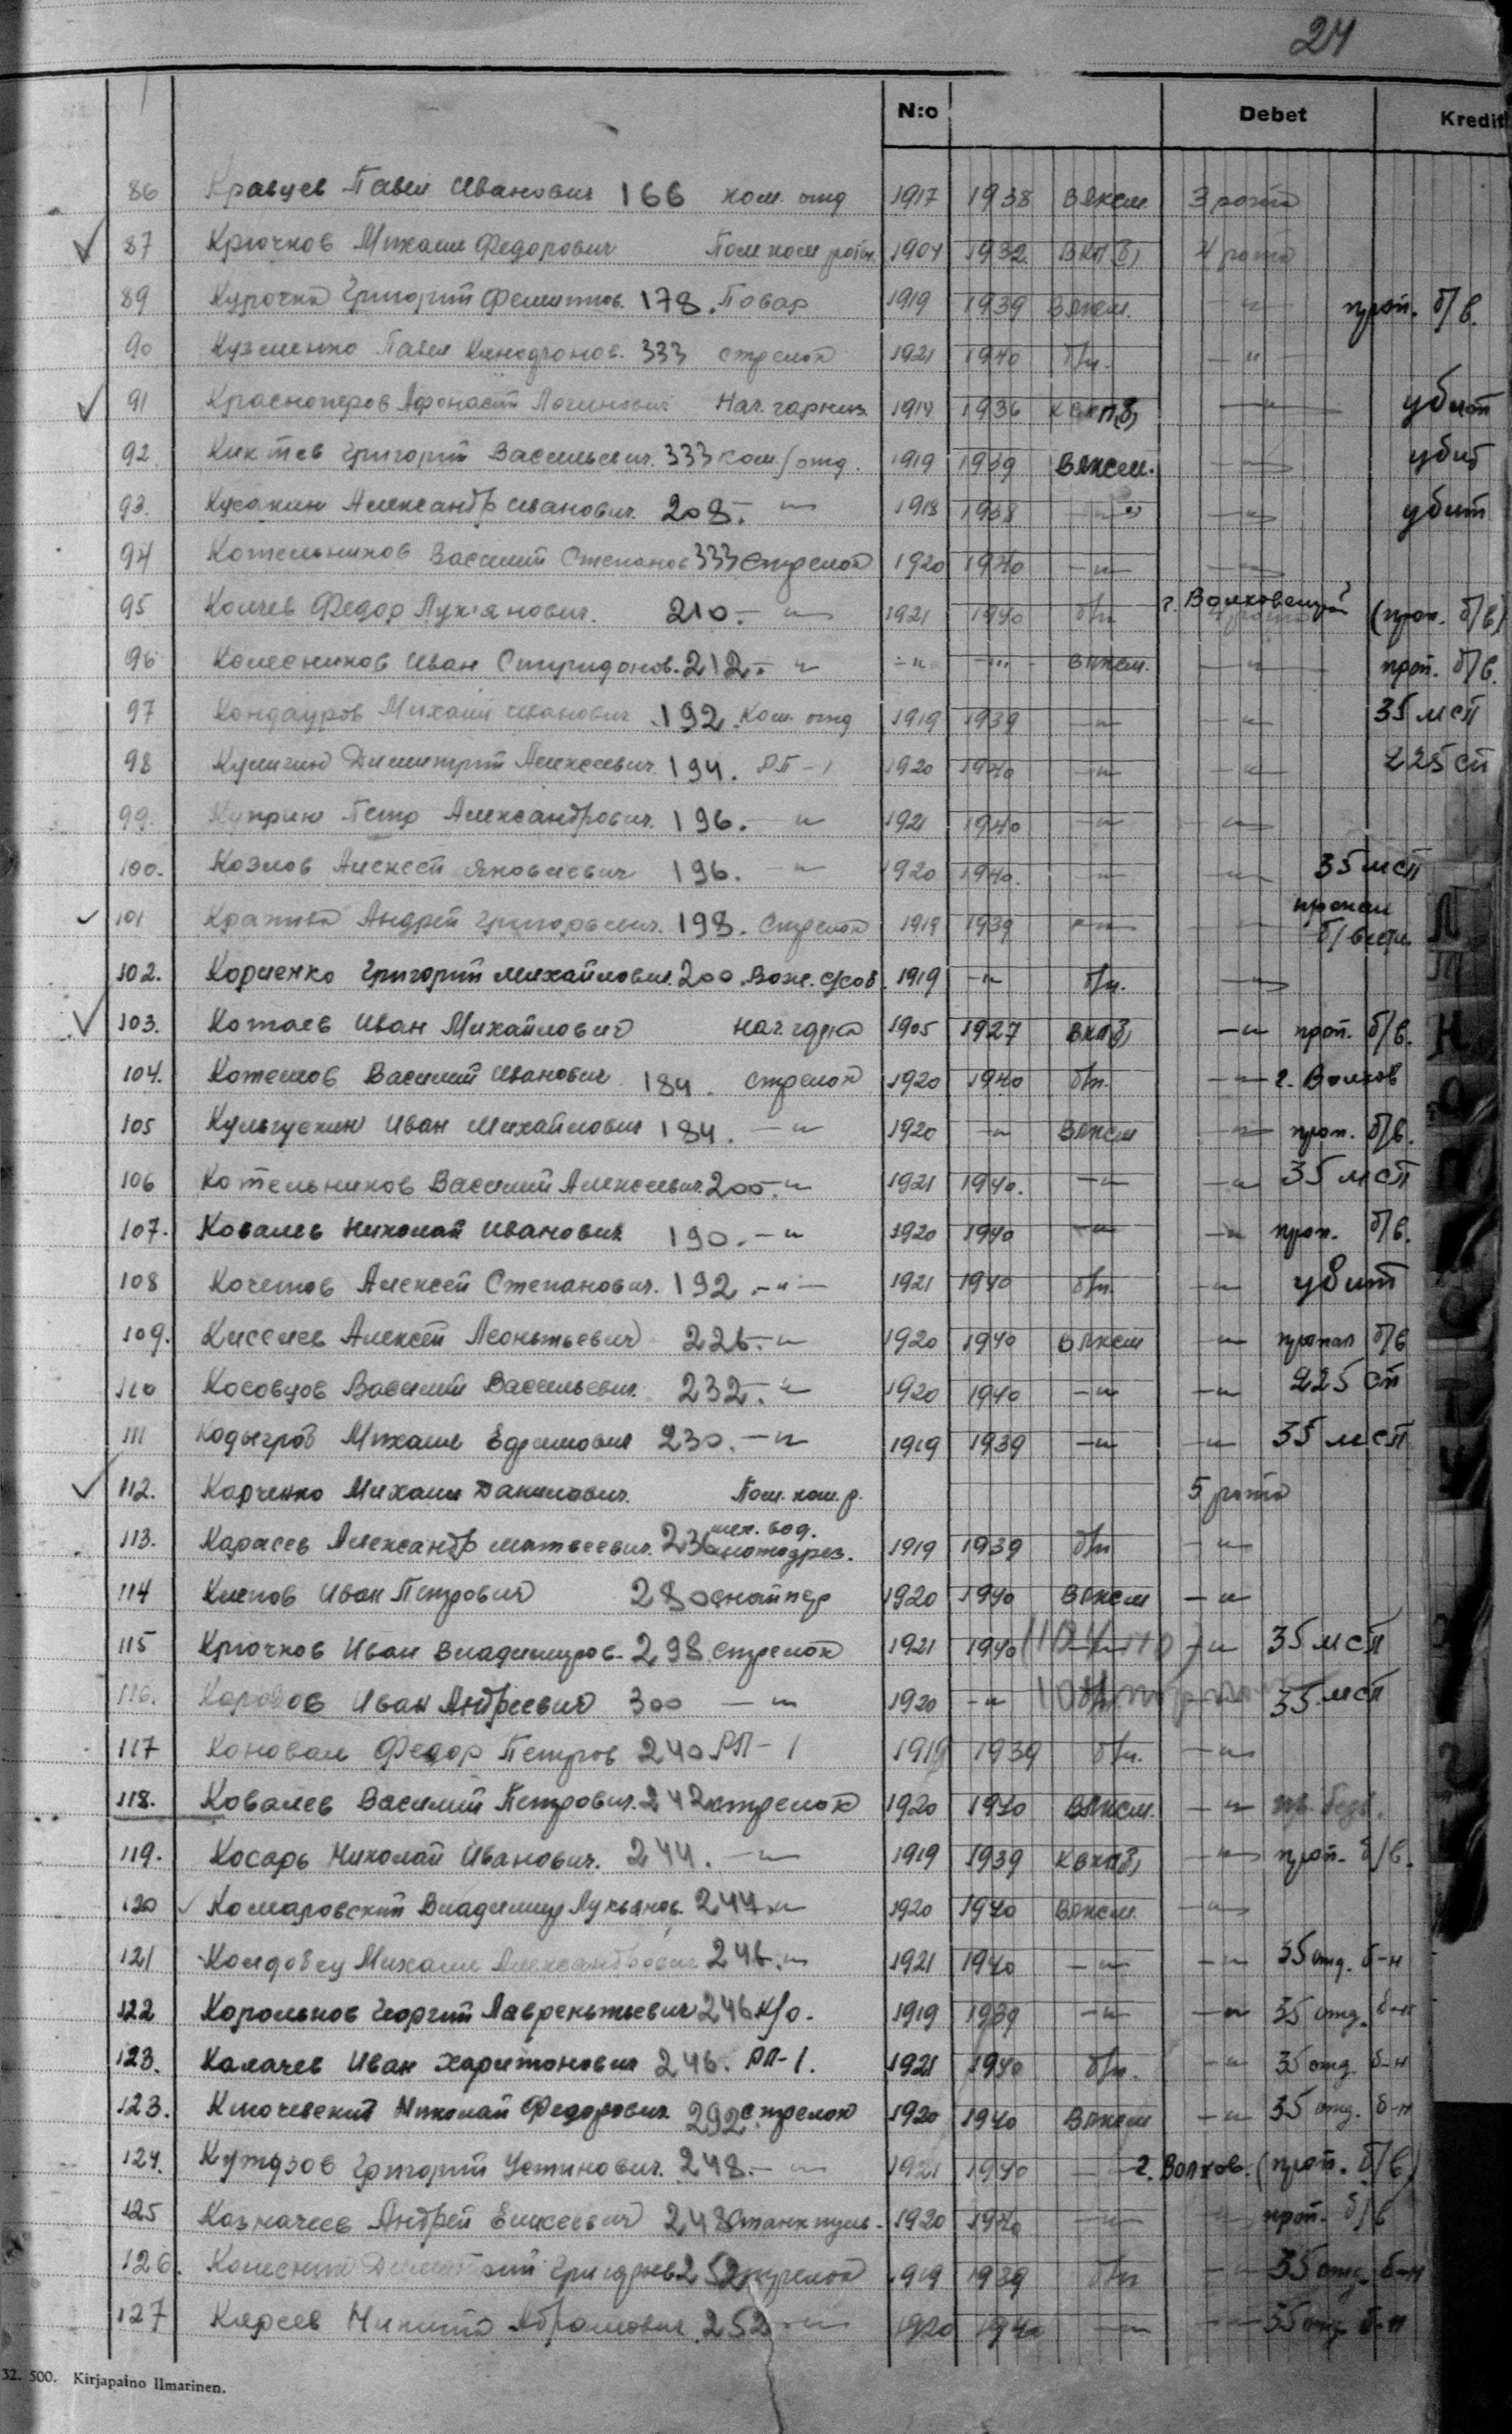 24
N:o Debet Kredit
86 Кравцев Павел Иванович 166 ком. отд 1917 1938 ВЛКСМ 3 рота
87 Крючков Михаил Федорович Пом ком роты 1904 1932 ВКП(б) 4 рота
89 Курочка Григорий 178. Повар 1919 1939 ВЛКСМ. -"- проп. б/в.
90 Кузменко Павел 333 стрелок 1921 1940 б/п. -"-
91 Красноперов Афонасий Логинович Нач. гарниз. 1914 1936 КВКП(б) -"- убит
92 Киктев Григорий Васильевич. 333 ком./отд. 1919 1939 ВЛКСМ. -"- убит
93. Кусакин Александр Иванович. 208. -"- 1918 1938 -"- -"- убит
94 Котельников Василий Степанов 333 Стрелок 1920 1940 -"- -"-
95 Колчев Федор Лук'янович. 210. -"- 1921 1940 б/п г. Волховский (проп. б/в)
96 Колесников Иван Спиридонов. 212. -"- -"- -"- ВЛКСМ. -"- проп. б/в.
97 Кондауров Михаил Иванович 192. Ком. отд 1919 1939 -"- -"- 35 мсп
98 Кулигин Димитрий Алексеевич 194. РП-1 1920 1940 -"- -"- 225 сп
99. Куприн Петр Александрович. 196. -"- 1921 1940 -"- -"-
100. Козлов Алексей Яковлевич 196. -"- 1920 1940. -"- -"- 35 мсп
101 Андрей Григорьевич. 198. Стрелок 1919 1939 -"- -"- пропал б/вести
102. Корненко Григорий Михайлович. 200. 1919 -"- б/п. -"-
103. Котаев Иван Михайлович 1905 1927 ВКП(б) -"- проп. б/в.
104. Котелов Василий Иванович 184. стрелок 1920 1940 б/п. -"- г. Волхов
105 Иван Михайлович 184. -"- 1920 -"- ВЛКСМ -"- проп. б/в.
106 Котельников Василий Алексеевич. 200. -"- 1921 1940. -"- -"- 35 мсп
107. Ковалев Николай Иванович 190. -"- 1920 1940 -"- -"- проп. б/в.
108 Кочетов Алексей Степанович. 192. -"- 1921 1940 б/п. -"- убит
109. Киселев Алексей Леонтьевич 226. -"- 1920 1940 ВЛКСМ -"- пропал б/в
110 Косовцов Василий Васильевич. 232. -"- 1920 1940 -"- -"- 225 сп
111 Михаил Ефимович 230. -"- 1919 1939 -"- -"- 35 мсп
112. Карченко Михаил Данилович. Пом. ком. р. 5 рота
113. Карасев Александр Матвеевич. 236 мех. вод. мотодрез. 1919 1939 б/п -"-
114 Клепов Иван Петрович 280 снайпер 1920 1940 ВЛКСМ -"-
115 Крючков Иван Владимиров. 298. стрелок 1921 1940 -"- 35 мсп
116. Иван Андреевич 300 -"- 1920 -"- -"- 35 мсп
117 Коновал Федор Петров 240 РП-1 1919 1939 б/п. -"-
118. Ковалев Василий Петрович. 242 стрелок 1920 1940 ВЛКСМ. -"-
119. Косарь Николай Иванович. 244. -"- 1919 1939 КВКП(б) -"- проп. б/в.
120 Комаровский Владимир Лукьянов. 244. -"- 1920 1940 ВЛКСМ. -"-
121 Михаил Александрович 246. -"- 1921 1940 -"- -"- 35 отд. б-н
122 Корольков Георгий Лаврентьевич 246 к/о. 1919 1939 -"- -"- 35 отд. б-н
123. Калачев Иван Харитонович 246. РП-1. 1921 1940 б/п. -"- 35 отд. б-н
123. Ключевский Николай Федорович 292. стрелок 1920 1940 ВЛКСМ -"- 35 отд. б-н
124. Кутузов Григорий Устинович. 248. -"- 1921 1940 -"- г. Волхов. (проп. б/в)
125 Казначеев Андрей Елисеевич 248 станк пуль. 1920 1940 -"- -"- проп. б/в
126. 252 стрелок 1919 1939 б/п -"- 35 отд. б-н
127 Никита Абрамович 252 -"- 1920 1940 -"- -"- 35 отд. б-н
32. 500. Kirjapaino Ilmarinen.